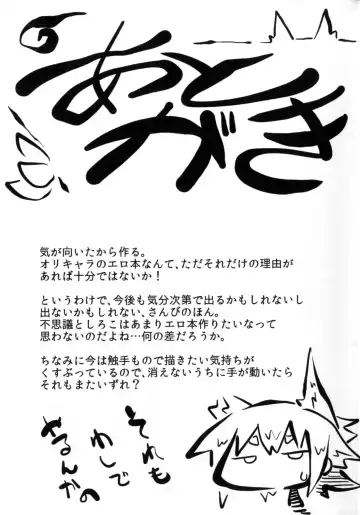 あとがき
気が向いたから作る。
オリキャラのエロ本なんて、ただそれだけの理由が
あれば十分ではないか！
というわけで、今後も気分次第で出るかもしれないし
出ないかもしれない、さんぴのほん。
不思議としろこはあまりエロ本作りたいなって
思わないのだよね…何の差だろうか。
ちなみに今は触手もので描きたい気持ちが
くすぶっているので、消えないうちに手が動いたら
それもまたいずれ？
それも
わしで
やるんかの